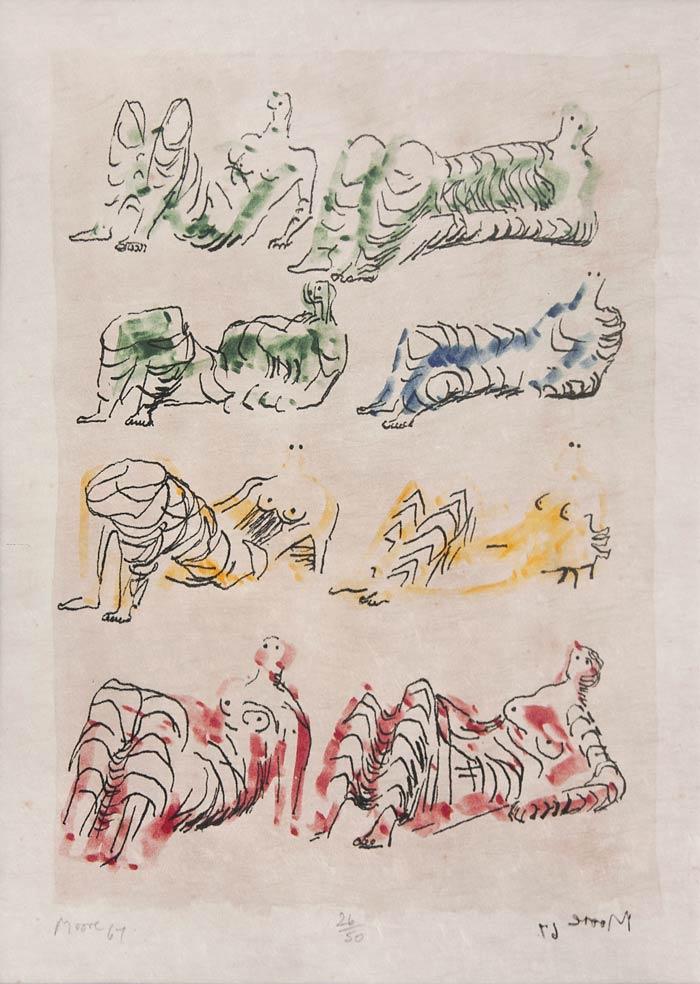 Moore 67.
26
50
Moore 67